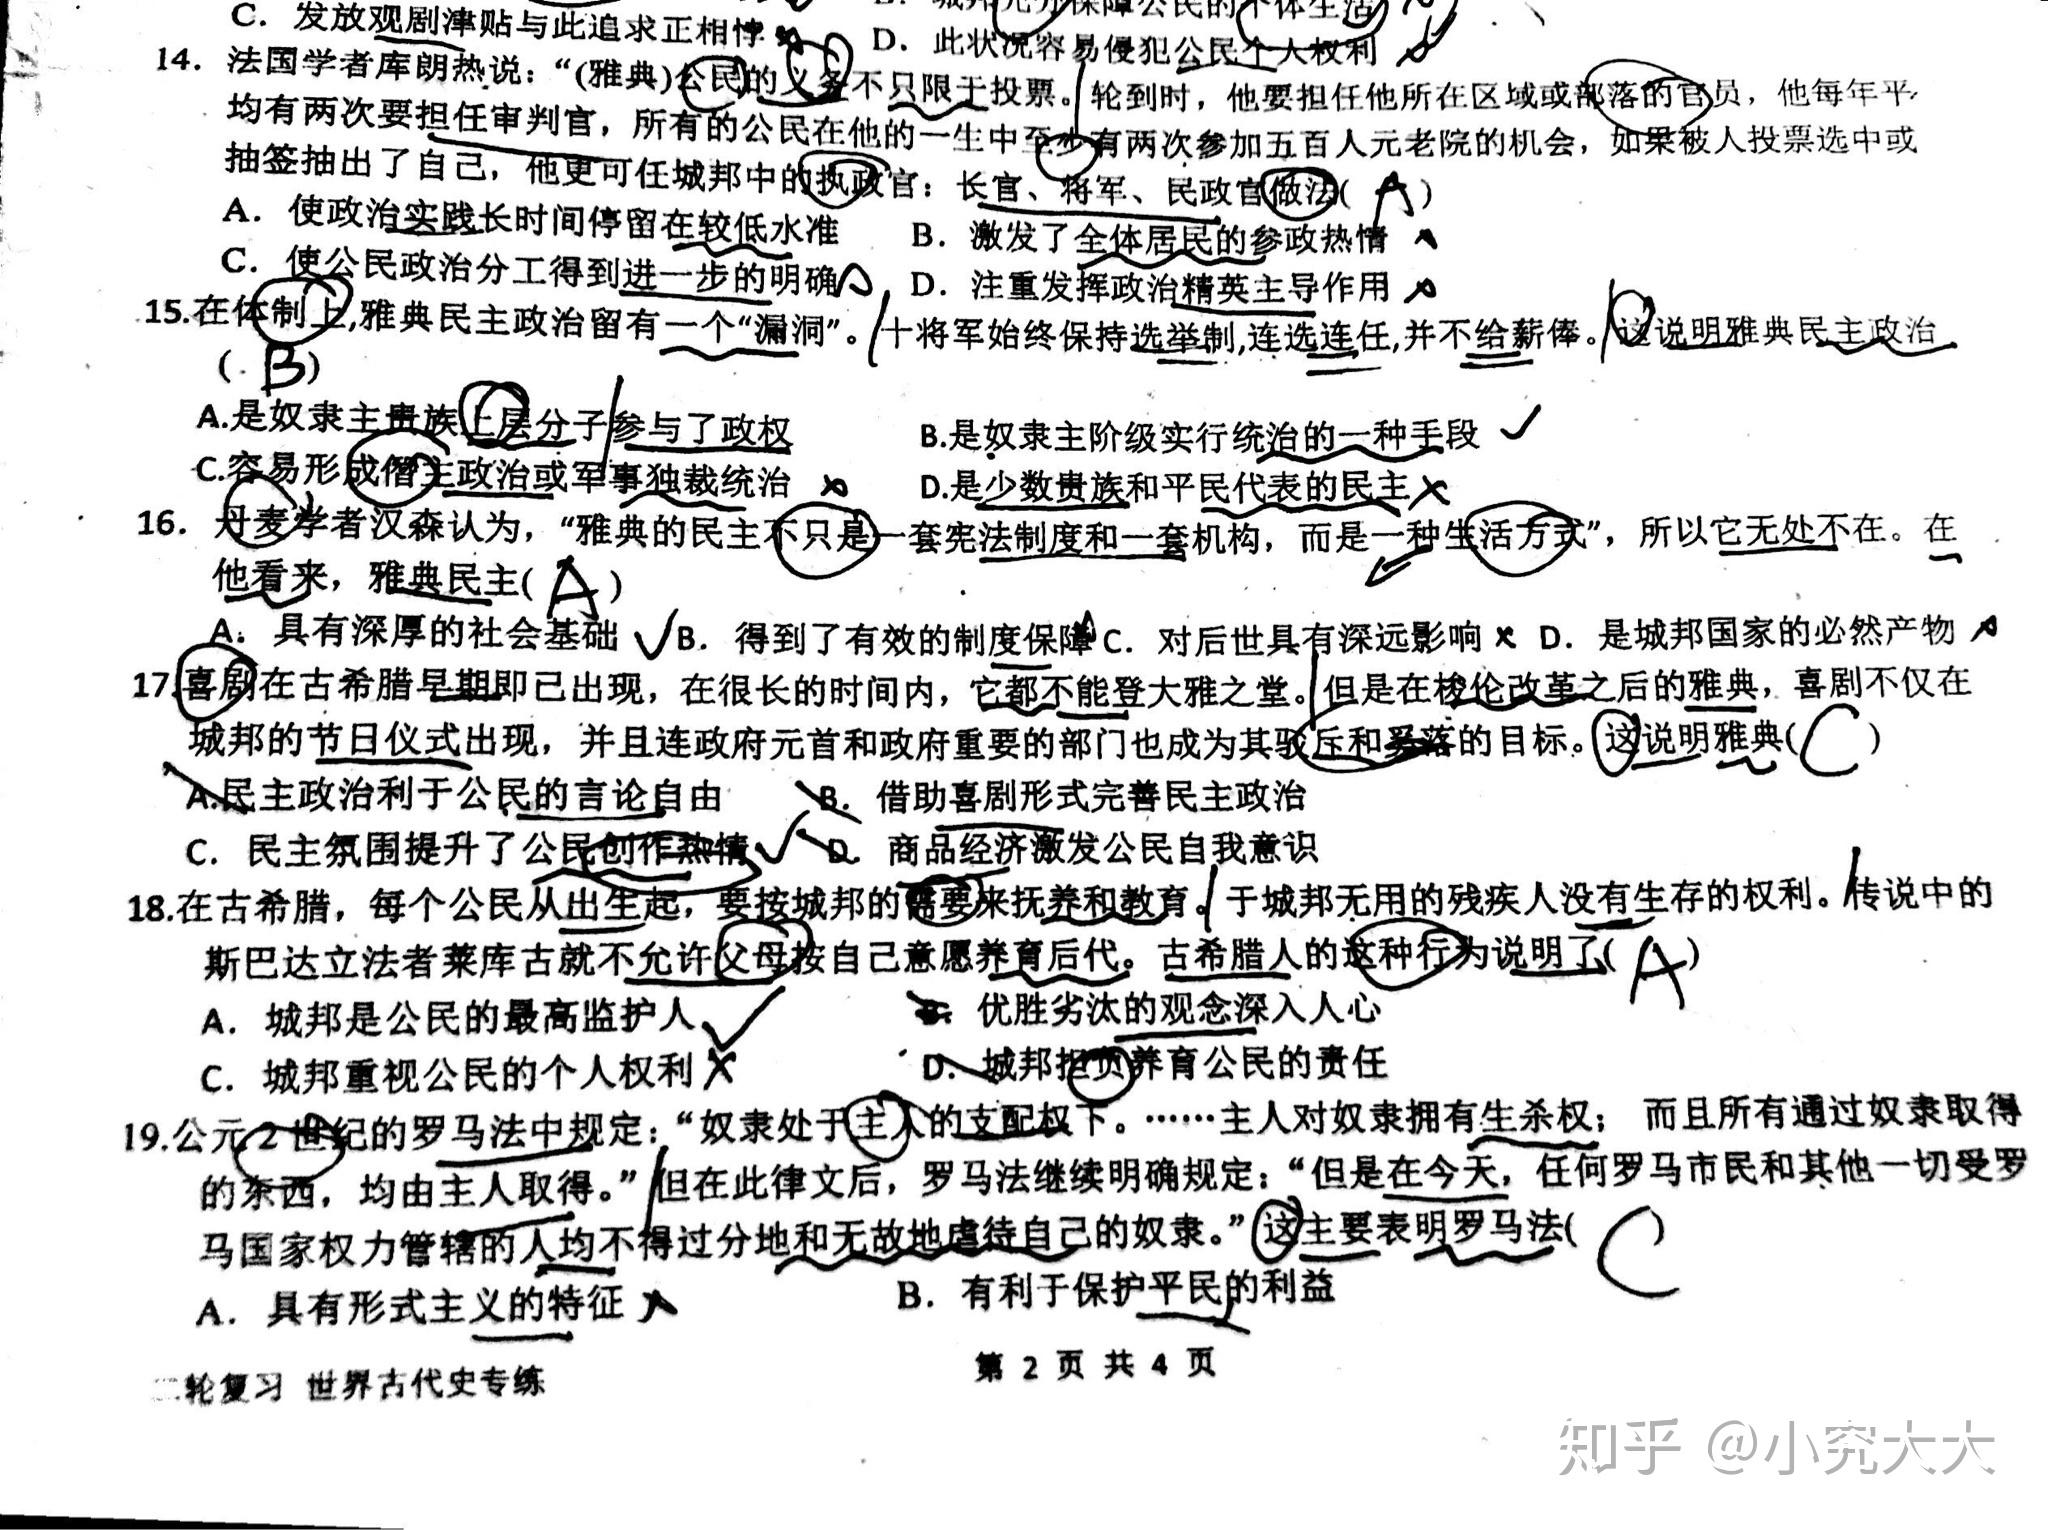 C. 发放观剧津贴与此追求正相悖 D. 此状况容易侵犯公民个人权利
14. 法国学者库朗热说：“(雅典)公民的义务不只限于投票。轮到时，他要担任他所在区域或部落的官员，他每年平
均有两次要担任审判官，所有的公民在他的一生中至少有两次参加五百人元老院的机会，如果被人投票选中或
抽签抽出了自己，他更可任城邦中的执政官：长官、将军、民政官做法( A )
A. 使政治实践长时间停留在较低水准 B. 激发了全体居民的参政热情
C. 使公民政治分工得到进一步的明确 D. 注重发挥政治精英主导作用
15.在体制上,雅典民主政治留有一个“漏洞”。十将军始终保持选举制,连选连任,并不给薪俸。这说明雅典民主政治
( B )
A.是奴隶主贵族上层分子参与了政权 B.是奴隶主阶级实行统治的一种手段
C.容易形成僭主政治或军事独裁统治 D.是少数贵族和平民代表的民主
16. 丹麦学者汉森认为，“雅典的民主不只是一套宪法制度和一套机构，而是一种生活方式”，所以它无处不在。在
他看来，雅典民主( A )
A. 具有深厚的社会基础 B. 得到了有效的制度保障 C. 对后世具有深远影响 D. 是城邦国家的必然产物
17.喜剧在古希腊早期即已出现，在很长的时间内，它都不能登大雅之堂。但是在梭伦改革之后的雅典，喜剧不仅在
城邦的节日仪式出现，并且连政府元首和政府重要的部门也成为其驳斥和奚落的目标。这说明雅典( C )
A.民主政治利于公民的言论自由 B. 借助喜剧形式完善民主政治
C. 民主氛围提升了公民创作热情 D. 商品经济激发公民自我意识
18.在古希腊，每个公民从出生起，要按城邦的需要来抚养和教育。于城邦无用的残疾人没有生存的权利。传说中的
斯巴达立法者莱库古就不允许父母按自己意愿养育后代。古希腊人的这种行为说明了( A )
A. 城邦是公民的最高监护人 B. 优胜劣汰的观念深入人心
C. 城邦重视公民的个人权利 D. 城邦担负养育公民的责任
19.公元 2 世纪的罗马法中规定：“奴隶处于主人的支配权下。……主人对奴隶拥有生杀权； 而且所有通过奴隶取得
的东西，均由主人取得。”但在此律文后，罗马法继续明确规定：“但是在今天，任何罗马市民和其他一切受罗
马国家权力管辖的人均不得过分地和无故地虐待自己的奴隶。”这主要表明罗马法( C
A. 具有形式主义的特征 B. 有利于保护平民的利益
第 2 页 共 4 页
二轮复习 世界古代史专练
知乎 @小究大大